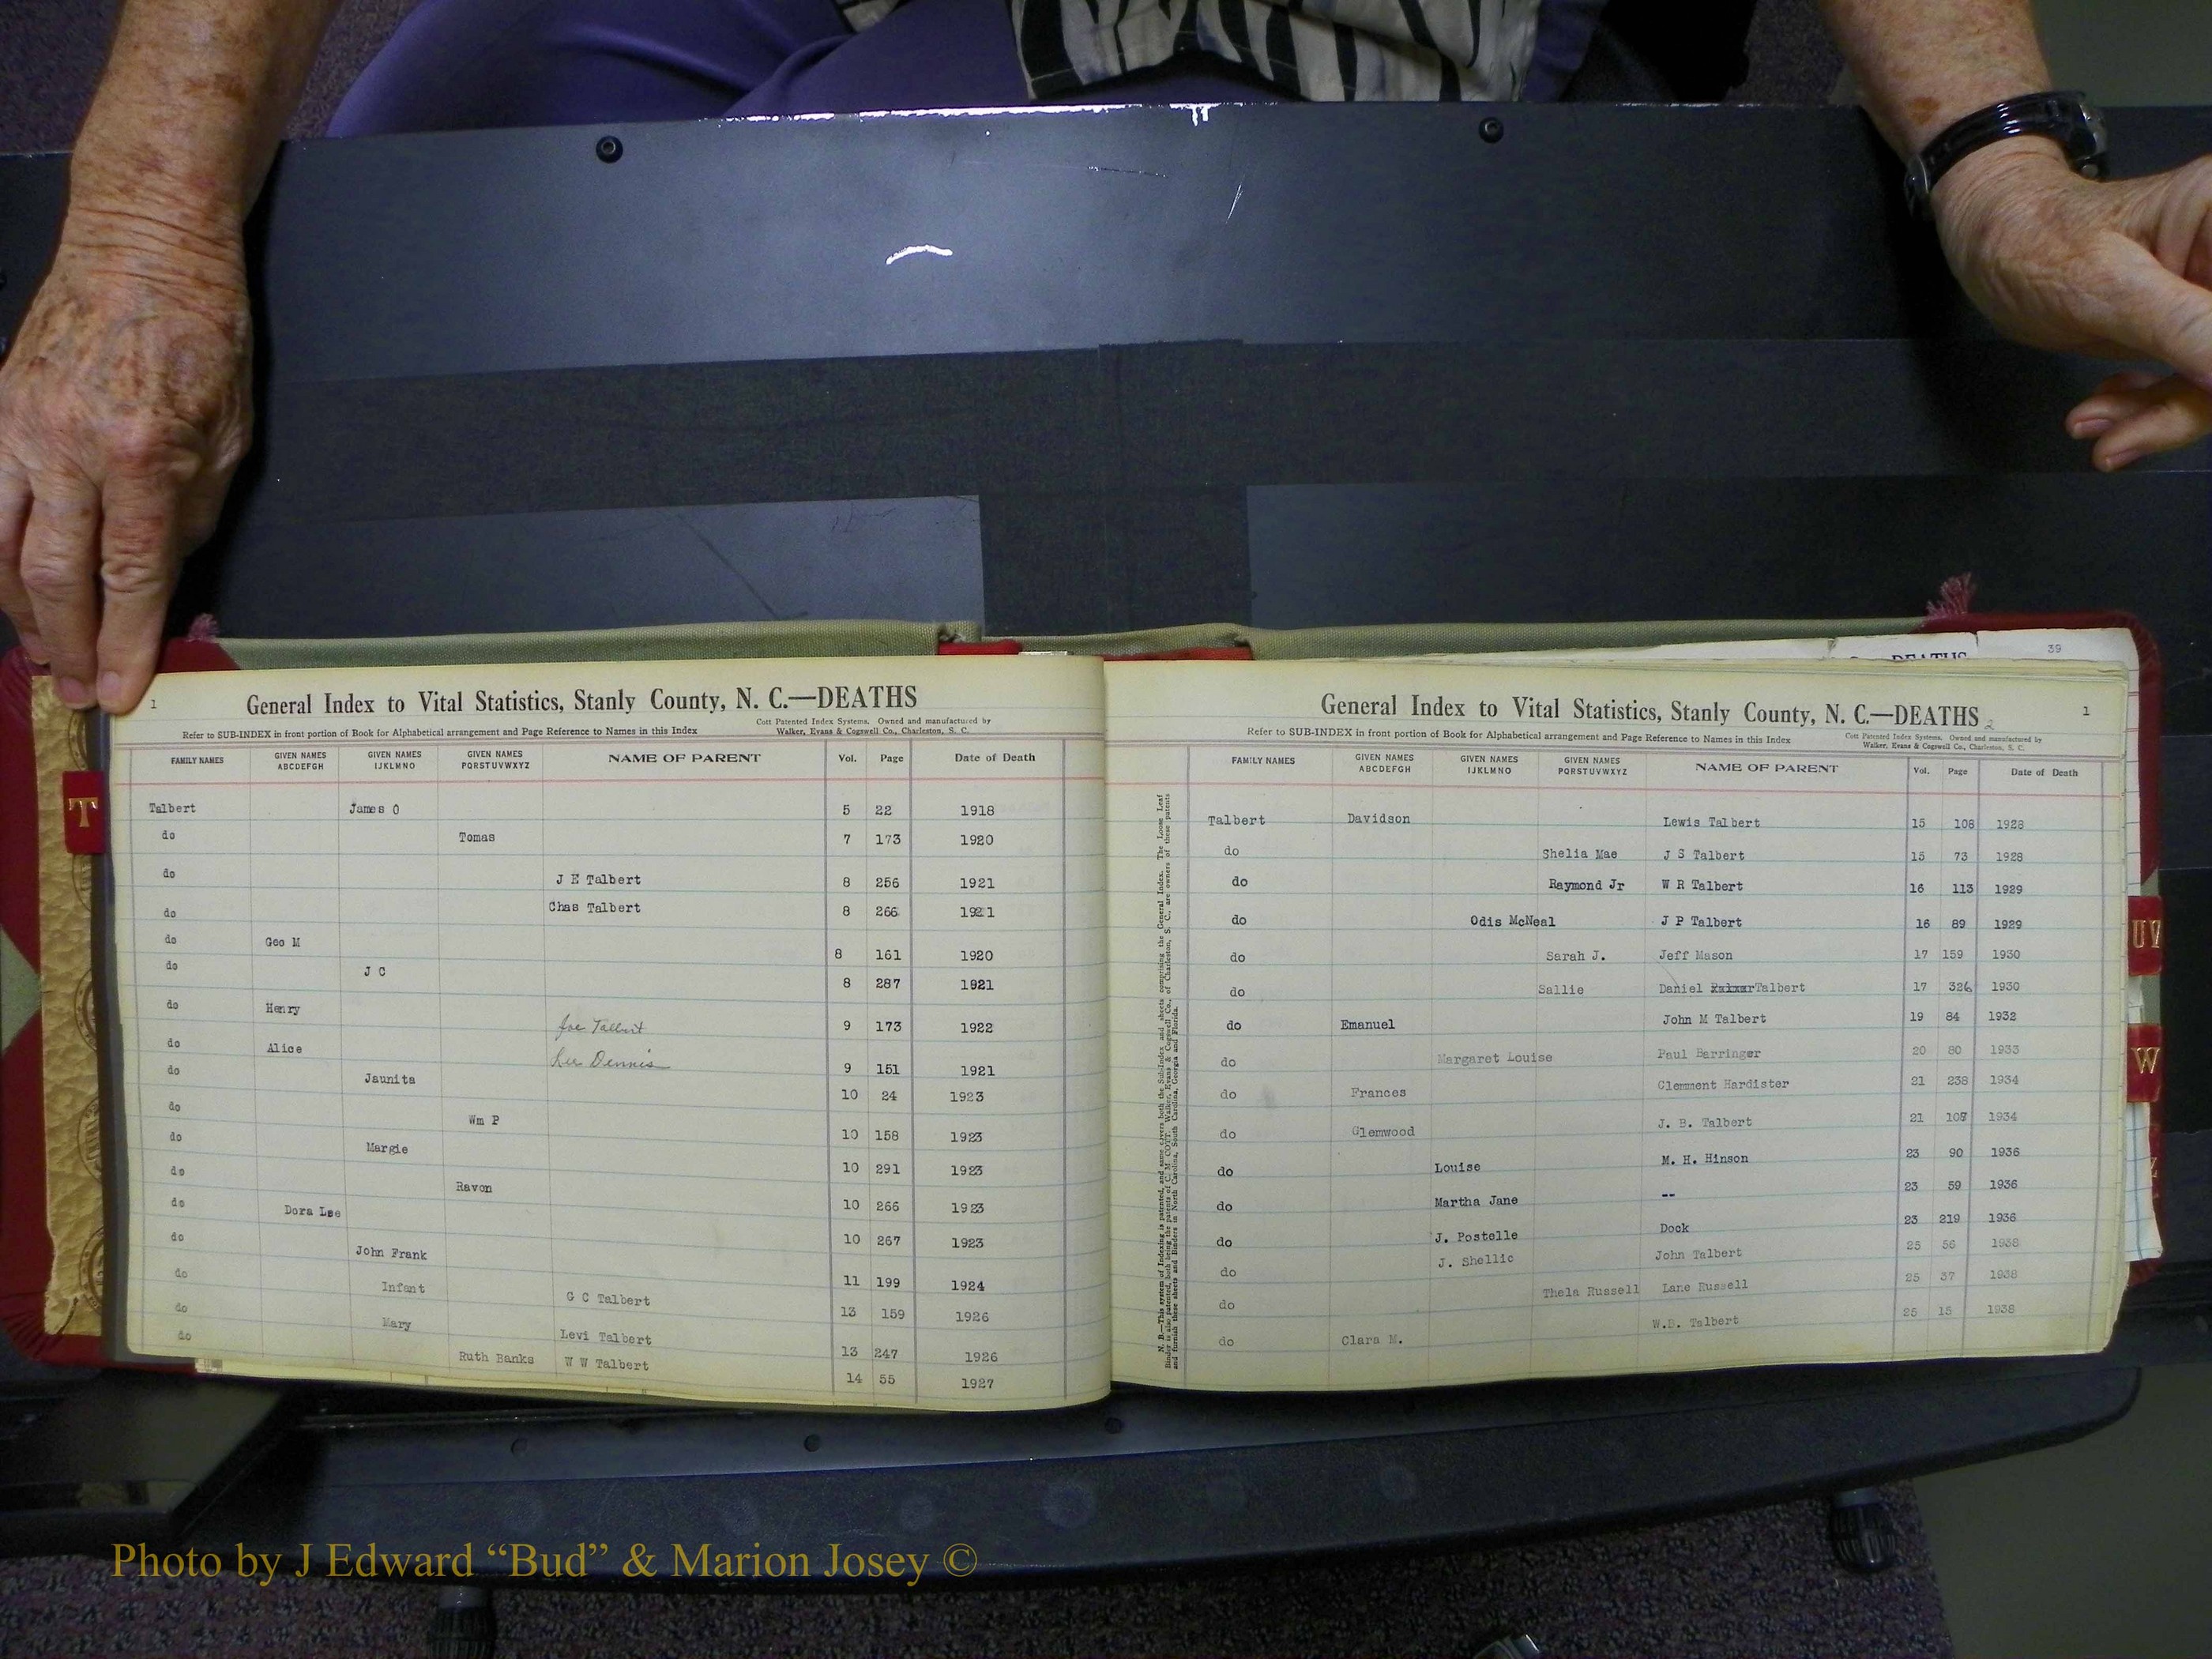 1
General Index to Vital Statistics, Stanly County, N. C.—DEATHS
Refer to SUB-INDEX in front portion of Book for Alphabetical arrangement and Page Reference to Names in this Index
Cott Patented Index Systems. Owned and manufactured by
Walker, Evans & Cogswell Co., Charleston, S. C.
FAMILY NAMES GIVEN NAMES ABCDEFGH GIVEN NAMES IJKLMNO GIVEN NAMES PQRSTUVWXYZ NAME OF PARENT Vol. Page Date of Death
Talbert James O 5 22 1918
do Tomas 7 173 1920
do J E Talbert 8 256 1921
do Chas Talbert 8 266 1921
do Geo M 8 161 1920
do J C 8 287 1921
do Henry Joe Talbert 9 173 1922
do Alice Lee Dennis 9 151 1921
do Jaunita 10 24 1923
do Wm P 10 158 1923
do Margie 10 291 1923
do Ravon 10 266 1923
do Dora Lee 10 267 1923
do John Frank 11 199 1924
do Infant G C Talbert 13 159 1926
do Mary Levi Talbert 13 247 1926
do Ruth Banks W W Talbert 14 55 1927
T
39
DEATHS
General Index to Vital Statistics, Stanly County, N. C.—DEATHS 2
1
Refer to SUB-INDEX in front portion of Book for Alphabetical arrangement and Page Reference to Names in this Index
Cott Patented Index Systems. Owned and manufactured by
Walker, Evans & Cogswell Co., Charleston, S. C.
FAMILY NAMES GIVEN NAMES ABCDEFGH GIVEN NAMES IJKLMNO GIVEN NAMES PQRSTUVWXYZ NAME OF PARENT Vol. Page Date of Death
Talbert Davidson Lewis Talbert 15 108 1928
do Shelia Mae J S Talbert 15 73 1928
do Raymond Jr W R Talbert 16 113 1929
do Odis McNeal J P Talbert 16 89 1929
do Sarah J. Jeff Mason 17 159 1930
do Sallie Daniel Talbert 17 326 1930
do Emanuel John M Talbert 19 84 1932
do Margaret Louise Paul Barringer 20 80 1933
do Frances Clemment Hardister 21 238 1934
do Glemwood J. B. Talbert 21 107 1934
do Louise M. H. Hinson 23 90 1936
do Martha Jane -- 23 59 1936
do J. Postelle Dock 23 219 1936
do J. Shellic John Talbert 25 56 1938
do Thela Russell Lane Russell 25 37 1938
do Clara M. W.B. Talbert 25 15 1938
N. B.—This system of Indexing is patented, and same covers both the Sub-Index and sheets comprising the General Index. The Loose Leaf
Binder is also patented, both being the patents of C. M. COTT. Walker, Evans & Cogswell Co., of Charleston, S. C., are owners of these patents
and furnish these sheets and Binders in North Carolina, South Carolina, Georgia and Florida.
UV
W
Photo by J Edward “Bud” & Marion Josey ©